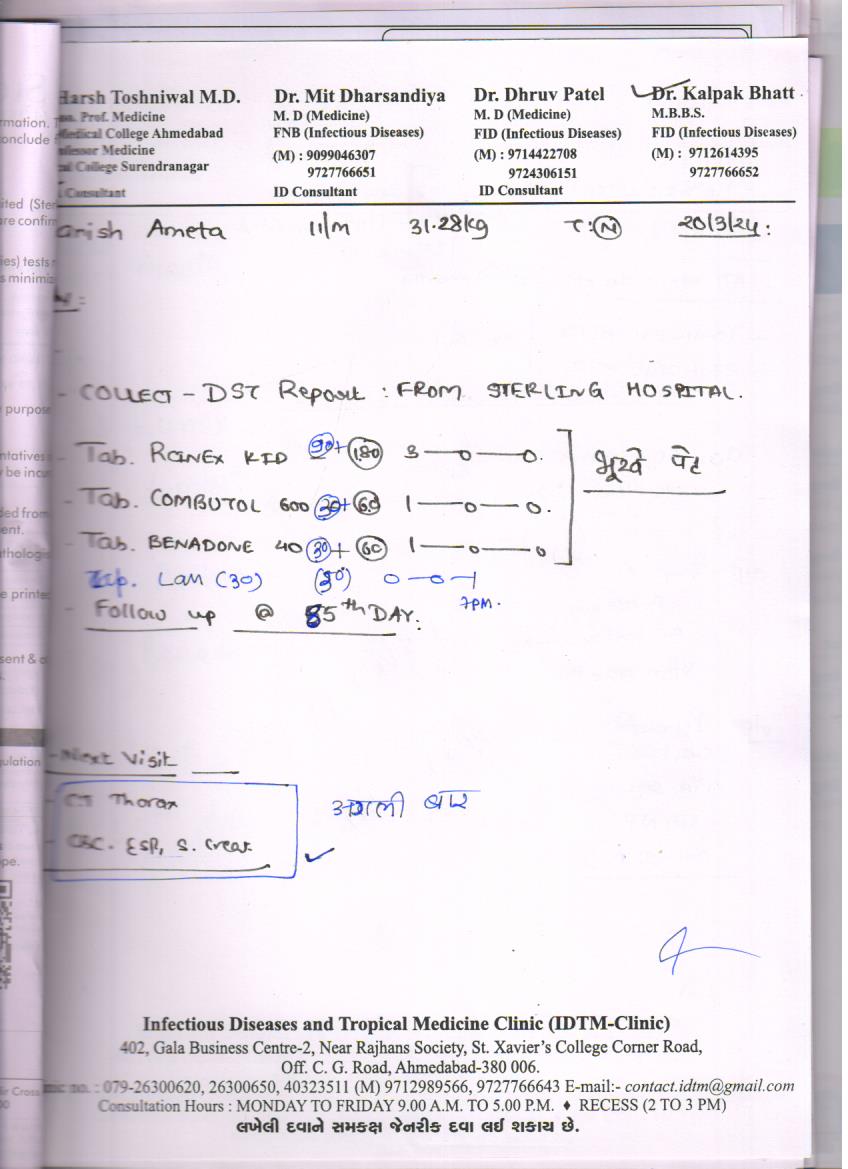 Harsh Toshniwal M.D.
Prof. Medicine
Medical College Ahmedabad
Professor Medicine
College Surendranagar
Consultant
Dr. Mit Dharsandiya
M. D (Medicine)
FNB (Infectious Diseases)
(M) : 9099046307
9727766651
ID Consultant
Dr. Dhruv Patel
M. D (Medicine)
FID (Infectious Diseases)
(M) : 9714422708
9724306151
ID Consultant
Dr. Kalpak Bhatt
M.B.B.S.
FID (Infectious Diseases)
(M) : 9712614395
9727766652
anish Ameta 11/M 31.28kg T: (N) 20/3/24 :
- COLLECT - DST Report : FROM STERLING HOSPITAL.
- Tab. RCINEX KID 90+ (180) 3 — 0 — 0.
- Tab. COMBUTOL 600 (30)+ (60) 1 — 0 — 0.
- Tab. BENADONE 40 (30)+ (60) 1 — 0 — 0
भूखे पेट
LAM (30) (30) 0 — 0 — 1
7PM.
- Follow up @ 85th DAY.
- Next Visit
- CT Thorax
- CBC. ESR, S. Creat
अगली बार
Infectious Diseases and Tropical Medicine Clinic (IDTM-Clinic)
402, Gala Business Centre-2, Near Rajhans Society, St. Xavier's College Corner Road,
Off. C. G. Road, Ahmedabad-380 006.
no. : 079-26300620, 26300650, 40323511 (M) 9712989566, 9727766643 E-mail:- contact.idtm@gmail.com
Consultation Hours : MONDAY TO FRIDAY 9.00 A.M. TO 5.00 P.M. ♦ RECESS (2 TO 3 PM)
લખેલી દવાને સમકક્ષ જેનરીક દવા લઈ શકાય છે.